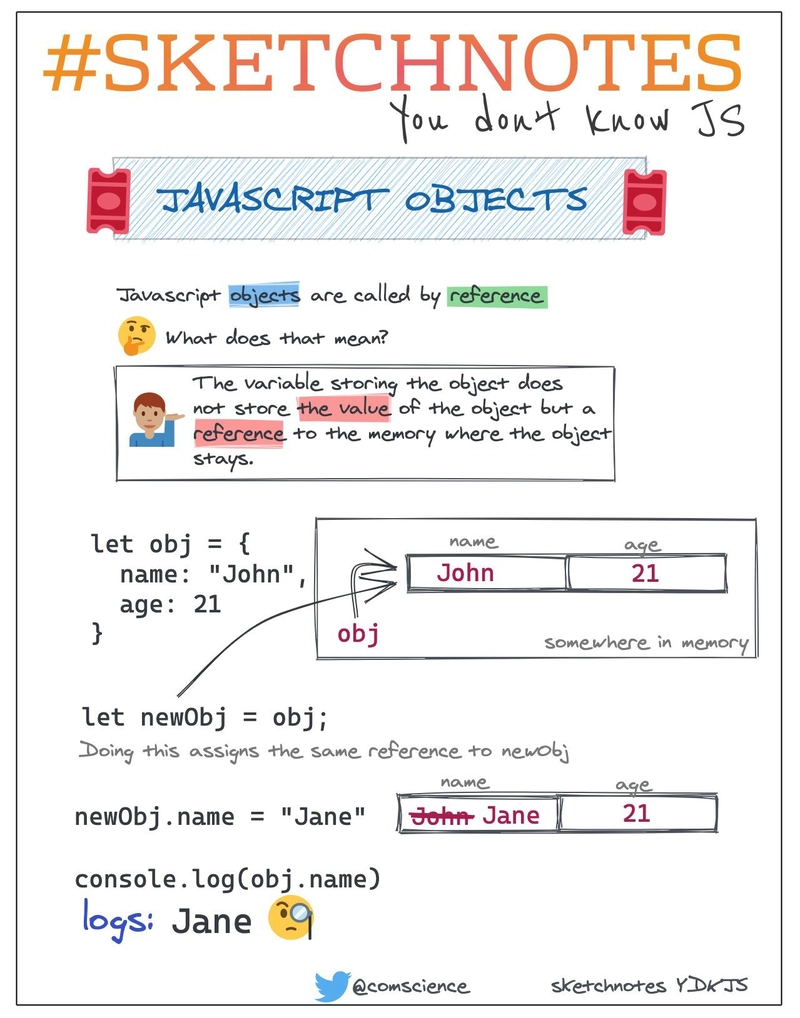 #SKETCHNOTES
You don't know JS
JAVASCRIPT OBJECTS
Javascript objects are called by reference
What does that mean?
The variable storing the object does
not store the value of the object but a
reference to the memory where the object
stays.
let obj = {
name: "John",
age: 21
}
name age
John 21
obj
somewhere in memory
let newObj = obj;
Doing this assigns the same reference to newObj
name age
newObj.name = "Jane" John Jane 21
console.log(obj.name)
logs: Jane
@comscience sketchnotes YDKJS